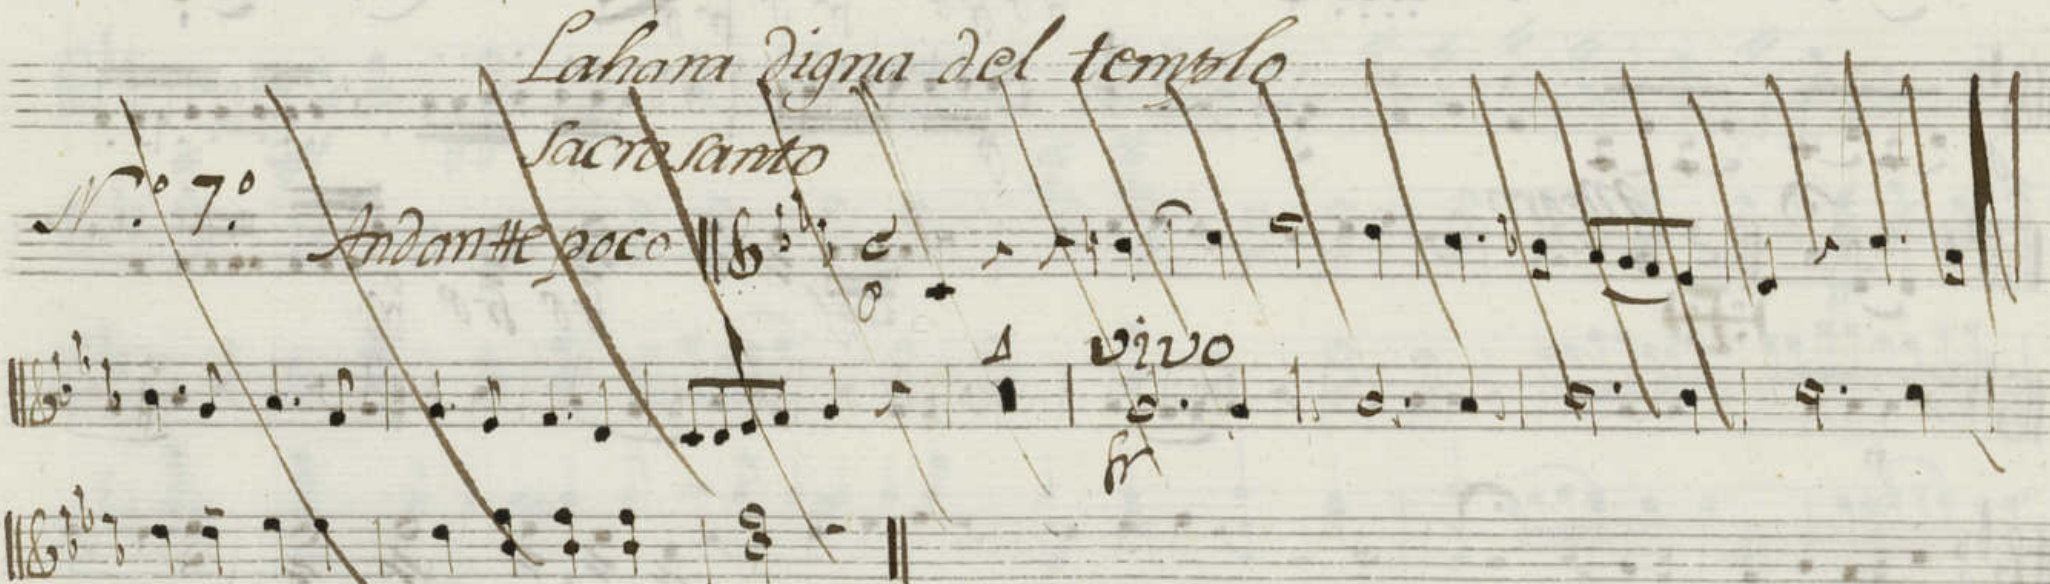 La hara digna del templo
sacrosanto
N.º 7.º
Andantte poco
vivo